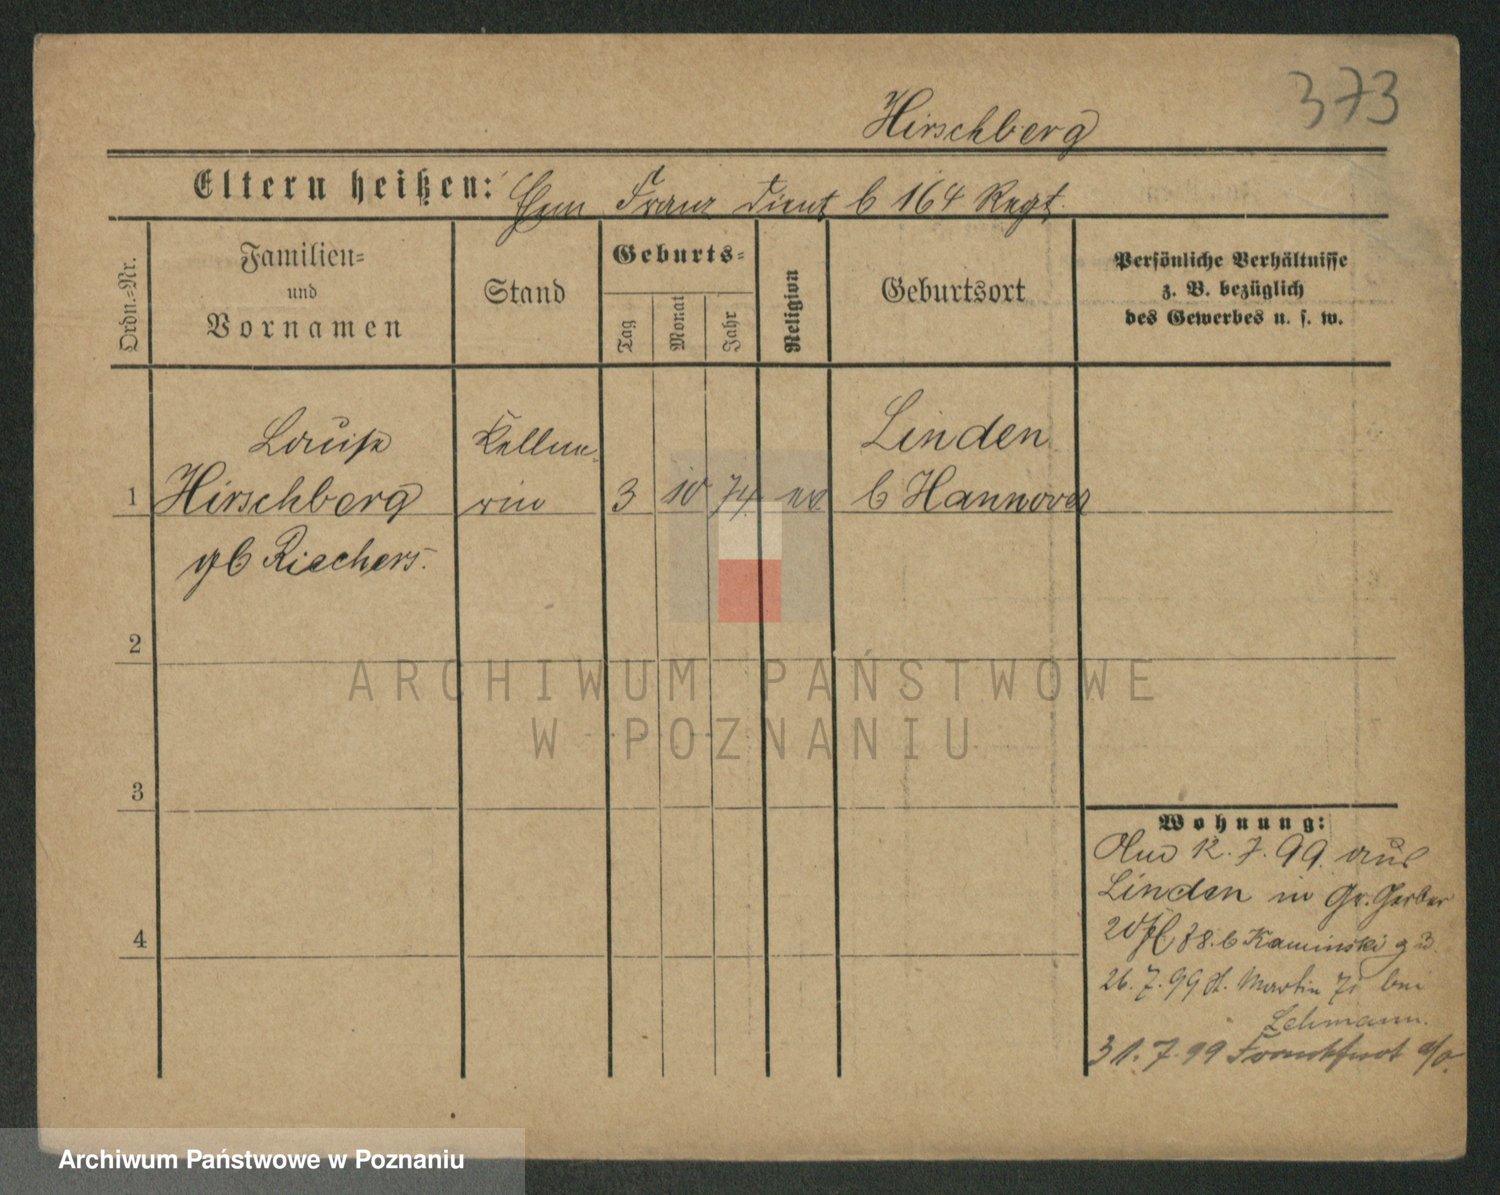 373
Hirschberg
Eltern heißen: Franz dient b 164 Regt.
Ordn.=Nr.
Familien=
und
Vornamen
Stand
Geburts=
Tag
Monat
Jahr
Religion
Geburtsort
Persönliche Verhältnisse
z. B. bezüglich
des Gewerbes u. s. w.
Louise Kellne- Linden
1 Hirschberg rin 3 10 74 ev. b Hannover
gb Riechers.
2
3
4
Wohnung:
12. 7. 99. aus
Linden in Gr. Gerber
38. b Kaminski
26. 7. 99 St. Martin bei
Lehmann.
31. 7. 99 Frankfurt a/o.
ARCHIWUM PAŃSTWOWE
W POZNANIU
Archiwum Państwowe w Poznaniu